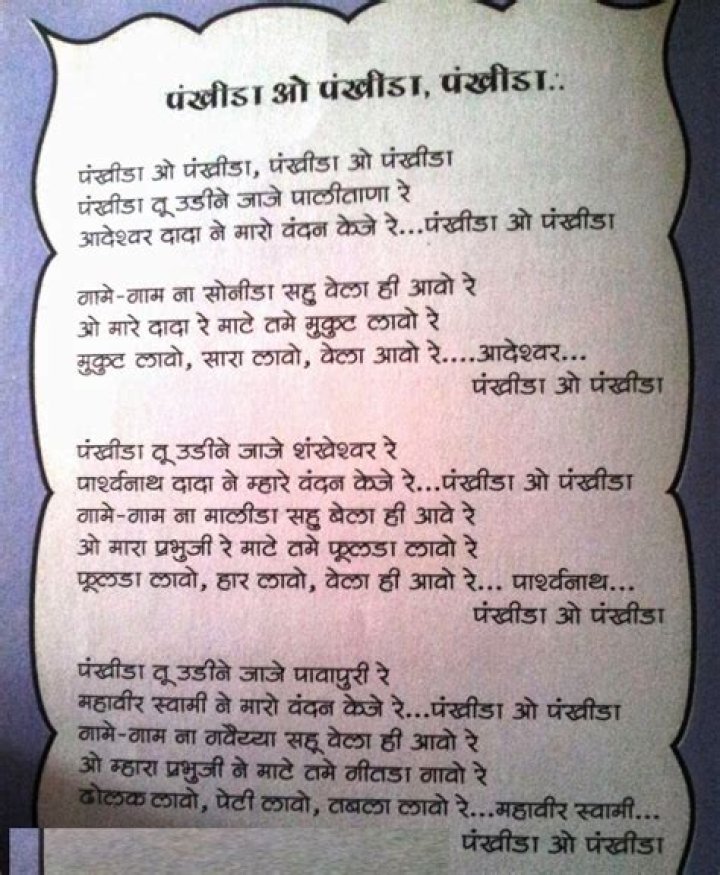 पंखीडा ओ पंखीडा, पंखीडा...
पंखीडा ओ पंखीडा, पंखीडा ओ पंखीडा
पंखीडा तू उडीने जाजे पालीताणा रे
आदेश्वर दादा ने मारो वंदन केजे रे...पंखीडा ओ पंखीडा
गामे-गाम ना सोनीडा सहु वेला ही आवो रे
ओ मारे दादा रे माटे तमे मुकुट लावो रे
मुकुट लावो, सारा लावो, वेला आवो रे....आदेश्वर...
पंखीडा ओ पंखीडा
पंखीडा तू उडीने जाजे शंखेश्वर रे
पार्श्वनाथ दादा ने म्हारे वंदन केजे रे...पंखीडा ओ पंखीडा
गामे-गाम ना मालीडा सहु बेला ही आवे रे
ओ मारा प्रभुजी रे माटे तमे फूलडा लावो रे
फूलडा लावो, हार लावो, वेला ही आवो रे... पार्श्वनाथ...
पंखीडा ओ पंखीडा
पंखीडा तू उडीने जाजे पावापुरी रे
महावीर स्वामी ने मारो वंदन केजे रे...पंखीडा ओ पंखीडा
गामे-गाम ना गवैय्या सहू वेला ही आवो रे
ओ म्हारा प्रभुजी ने माटे तमे गीतडा गावो रे
ढोलक लावो, पेटी लावो, तबला लावो रे...महावीर स्वामी...
पंखीडा ओ पंखीडा